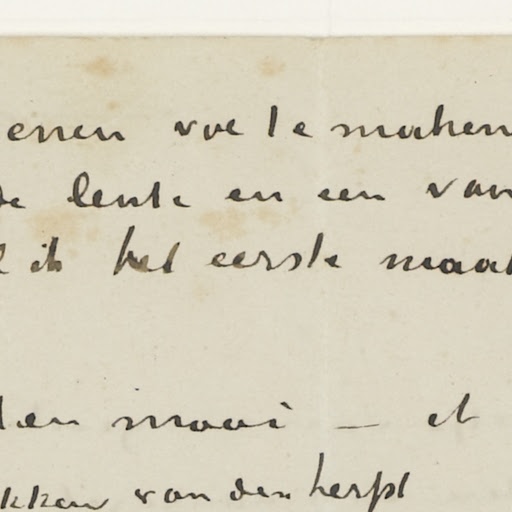 ennen voe te maken
de lente en een van
l ik het eerste maak
den mooi — et
kken van den herfst